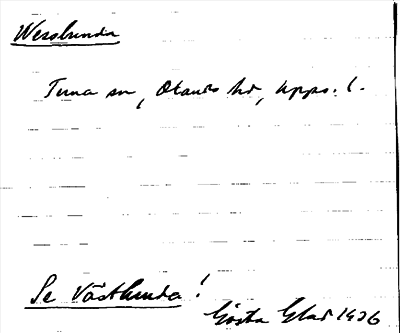 Wesslunda
Tuna sn, Olands hd, Upps. l.
Se Västlunda!
Gösta Glad 1926